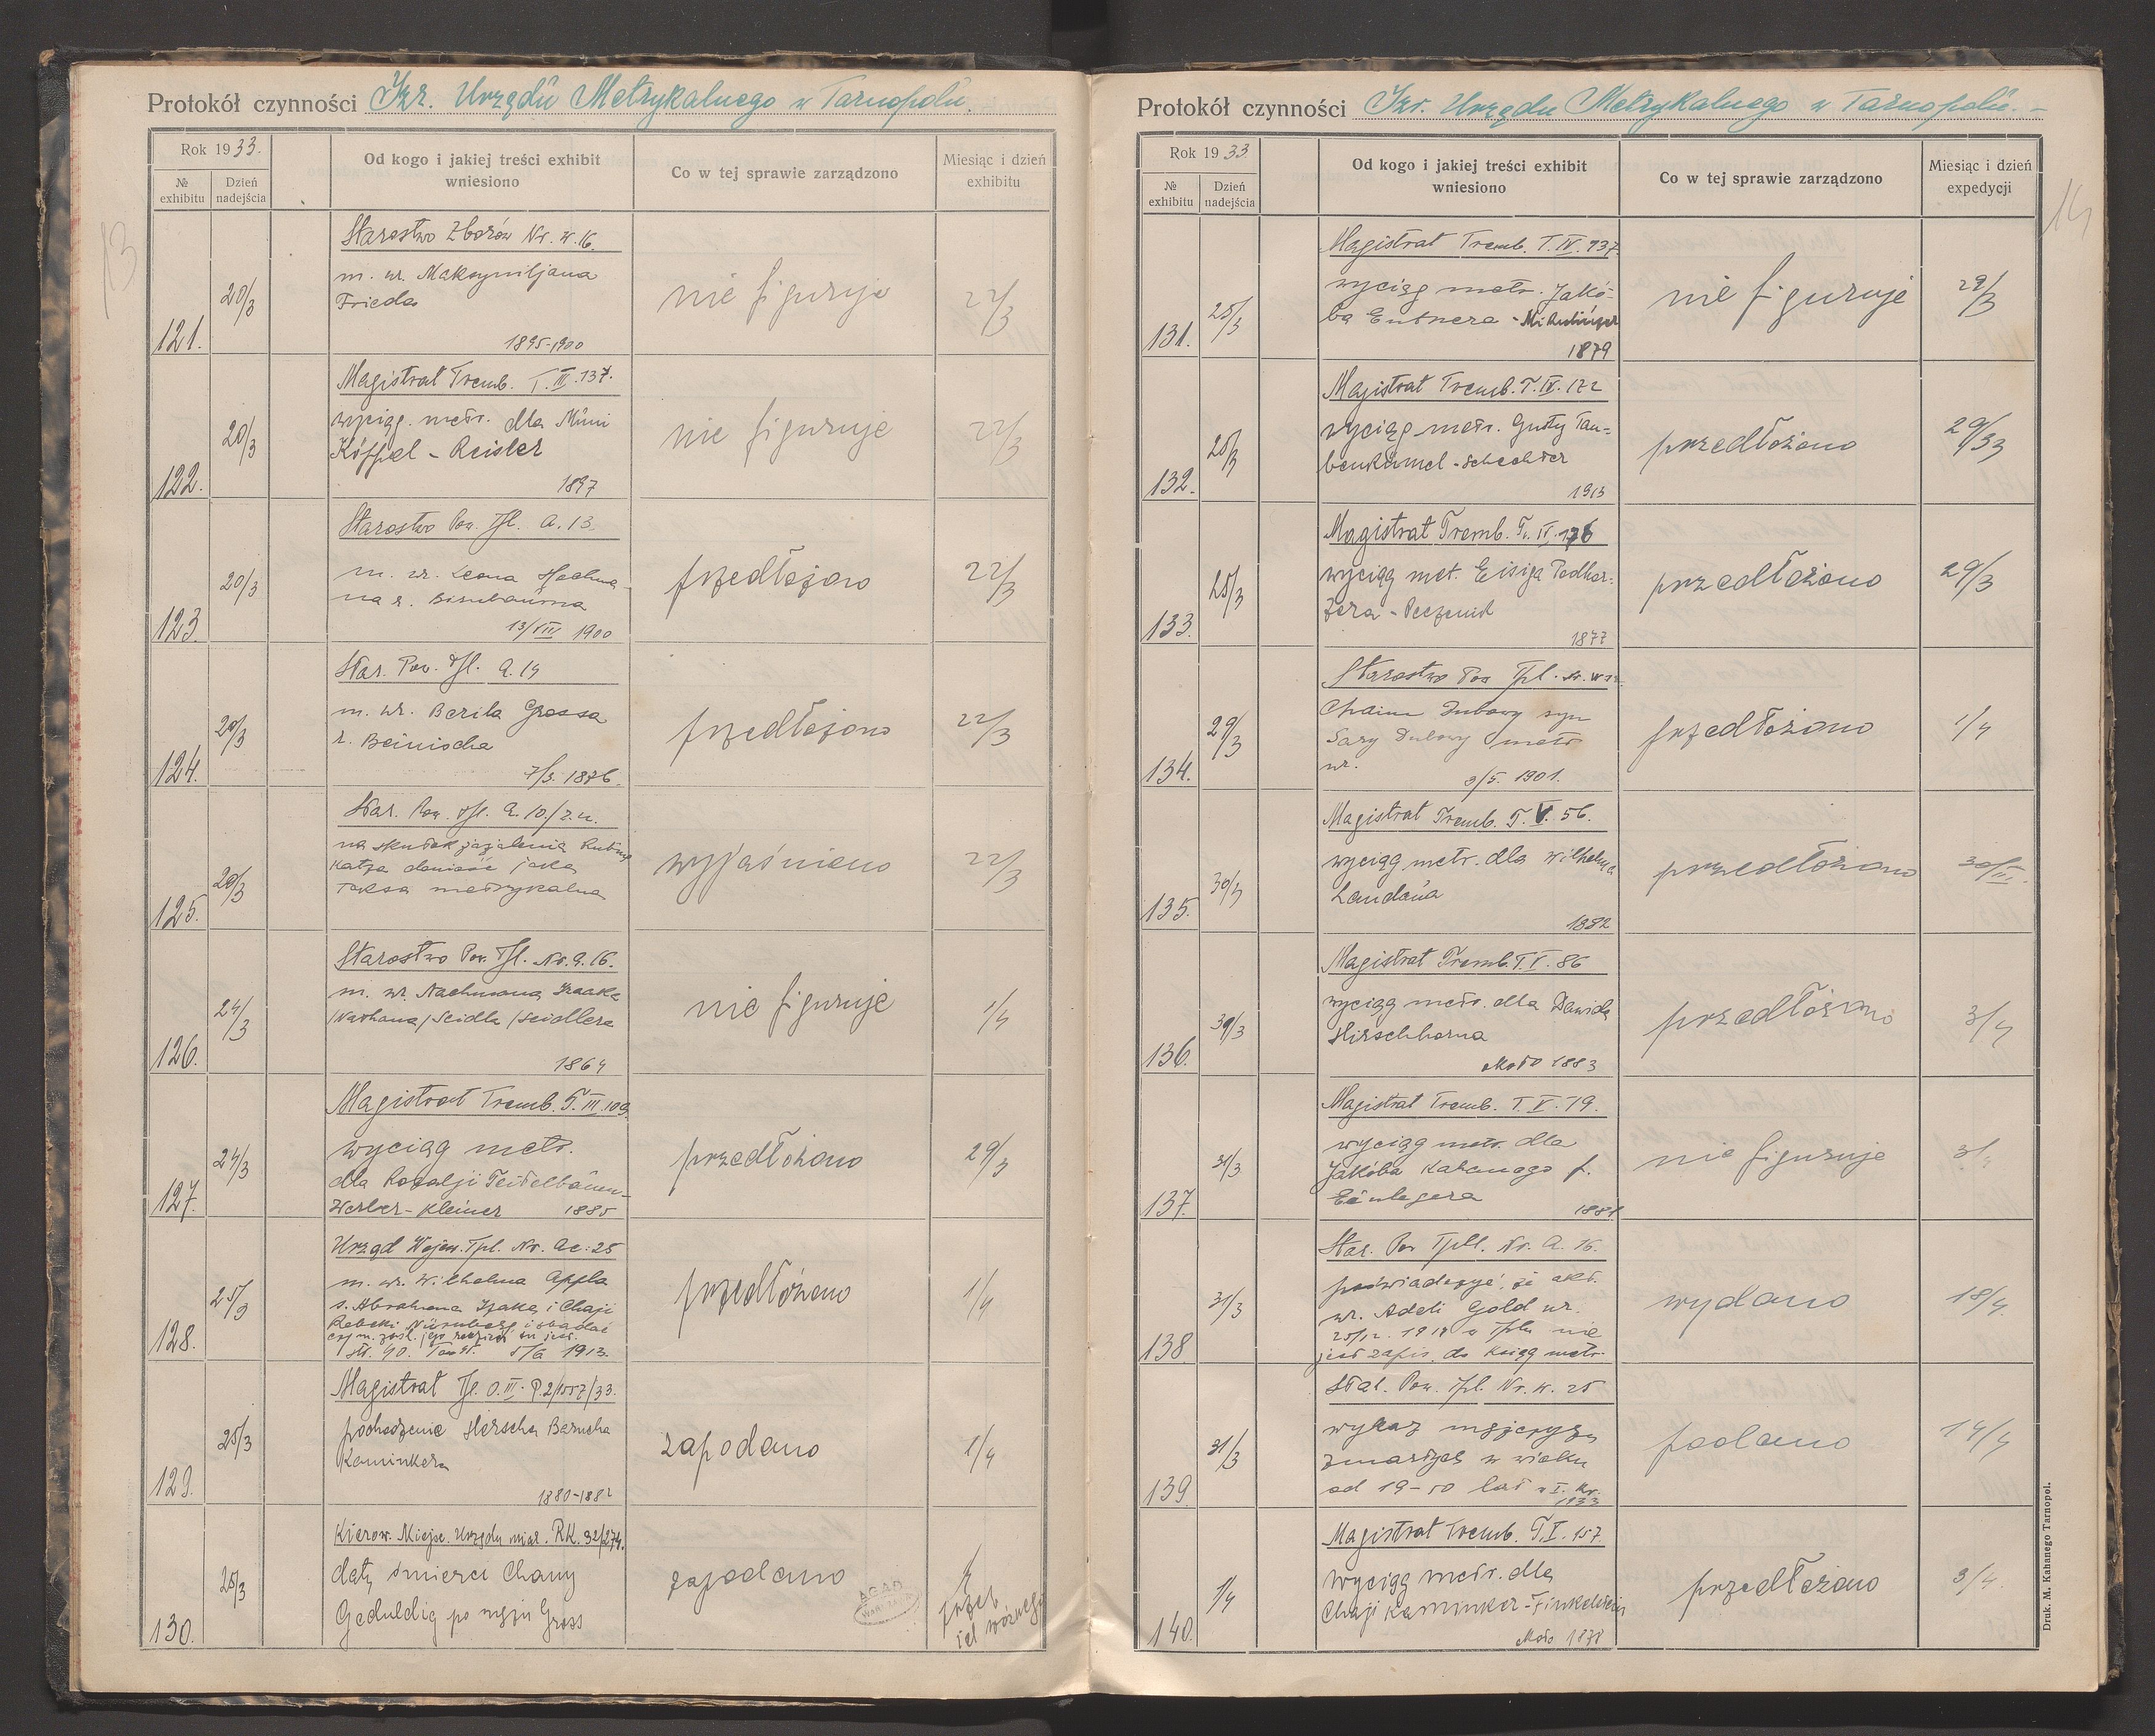 13
Protokół czynności Izr. Urzędu Metrykalnego w Tarnopolu.
Rok 1933.
№ exhibitu
Dzień nadejścia
Od kogo i jakiej treści exhibit wniesiono
Co w tej sprawie zarządzono
Miesiąc i dzień exhibitu
121.
20/3
Starostwo Zborów Nr. W. 16.
m. ur. Maksymiljana
Frieda
1895-1900
nie figuruje
22/3
122.
20/3
Magistrat Tremb. T. III. 137.
wyciąg. metr. dla Mimi
Köppel - Reisler
1897
nie figuruje
22/3
123.
20/3
Starostwo Pow. Tpl. A. 13.
m. ur. Leona Nachma-
na z. Birnbauma
13/VIII 1900
przedłożono
22/3
124.
20/3
Star. Pow. Tpl. A. 14
m. ur. Berila Grossa
z. Beinischa
7/3. 1876.
przedłożono
22/3
125.
20/3
Star. Pow. Tpl. A. 10./z.u.
na skutek zażalenia
Katza donieść jaka
Taksa metrykalna
wyjaśniono
22/3
126.
24/3
Starostwo Pow. Tpl. Nr. A. 16.
m. ur. Nachmana Izaaka
/Nathana/ Seidla /Seidlera
1864
nie figuruje
1/4
127.
24/3
Magistrat Tremb. T. III. 109.
wyciąg metr.
dla Rozalji Teitelbaum-
Werber - Kleiner 1885
przedłożono
29/3
128.
25/3
Urząd Wojew. Tpl. Nr. Ac: 25
m. ur. Wilhelma Appla
s. Abrahama Izaka i Chaji
Rebeki Nürnberg i zbadać
5/6 1913.
przedłożono
1/4
129.
25/3
Magistrat Tpl. O. III. P. 2/1557/33.
pochodzenie Herscha Barucha
Kaminkera
1880-1882
zapodano
1/4
130.
25/3
Kierow. Miejsc. Urzędu miar. RK. 32/274.
datę śmierci Chany
Geduldig po mężu Gross
zapodano
przez
ich woźnego
AGAD
WARSZAWA
14
Protokół czynności Izr. Urzędu Metrykalnego w Tarnopolu.-
Rok 1933
№ exhibitu
Dzień nadejścia
Od kogo i jakiej treści exhibit wniesiono
Co w tej sprawie zarządzono
Miesiąc i dzień expedycji
131.
25/3
Magistrat Tremb. T. IV. 937.
wyciąg metr. Jakó-
ba Entnera - Mikulińcer
1879
nie figuruje
29/3
132.
25/3
Magistrat Tremb. T. IV. 172
wyciąg metr. Gusty Tau-
benkimel - Schechter
1913
przedłożono
29/33
133.
25/3
Magistrat Tremb. T. IV. 176
wyciąg met. Eisiga Podhor-
zera - Peczenik
1877
przedłożono
29/3
134.
29/3
Starostwo Pow Tpl.
Chaim Dubowy syn
Sary Dubowy metr
ur.
9/5. 1901.
przedłożono
1/4
135.
30/3
Magistrat Tremb. T. V. 56.
wyciąg metr. dla Wilhelma
Landaua
1882
przedłożono
30/III.
136.
30/3
Magistrat Tremb. T. V. 86
wyciąg metr. dla Dawida
Hirschhorna
około 1883
przedłożono
3/4
137.
31/3
Magistrat Tremb. T. V. 79.
wyciąg metr. dla
Jakóba Kahanego f.
Einlegera
1881
nie figuruje
3/4
138.
31/3
Star. Pow Tpl. Nr. A. 16.
poświadczyć, że akt.
ur. Adeli Gold ur.
25/12. 1917 w Tplu nie
jest zapis. do ksiąg metr.
wydano
18/4.
139.
31/3
Star. Pow. Tpl. Nr. W. 25
wykaz mężczyzn
zmarłych w wieku
od 19-50 lat w I. kw.
1933
podano
14/4
140.
1/4
Magistrat Tremb. T. I. 157.
wyciąg metr. dla
Chaji Kaminker - Finkelstein
około 1878
przedłożono
3/4.
Druk. M. Kahanego Tarnopol.